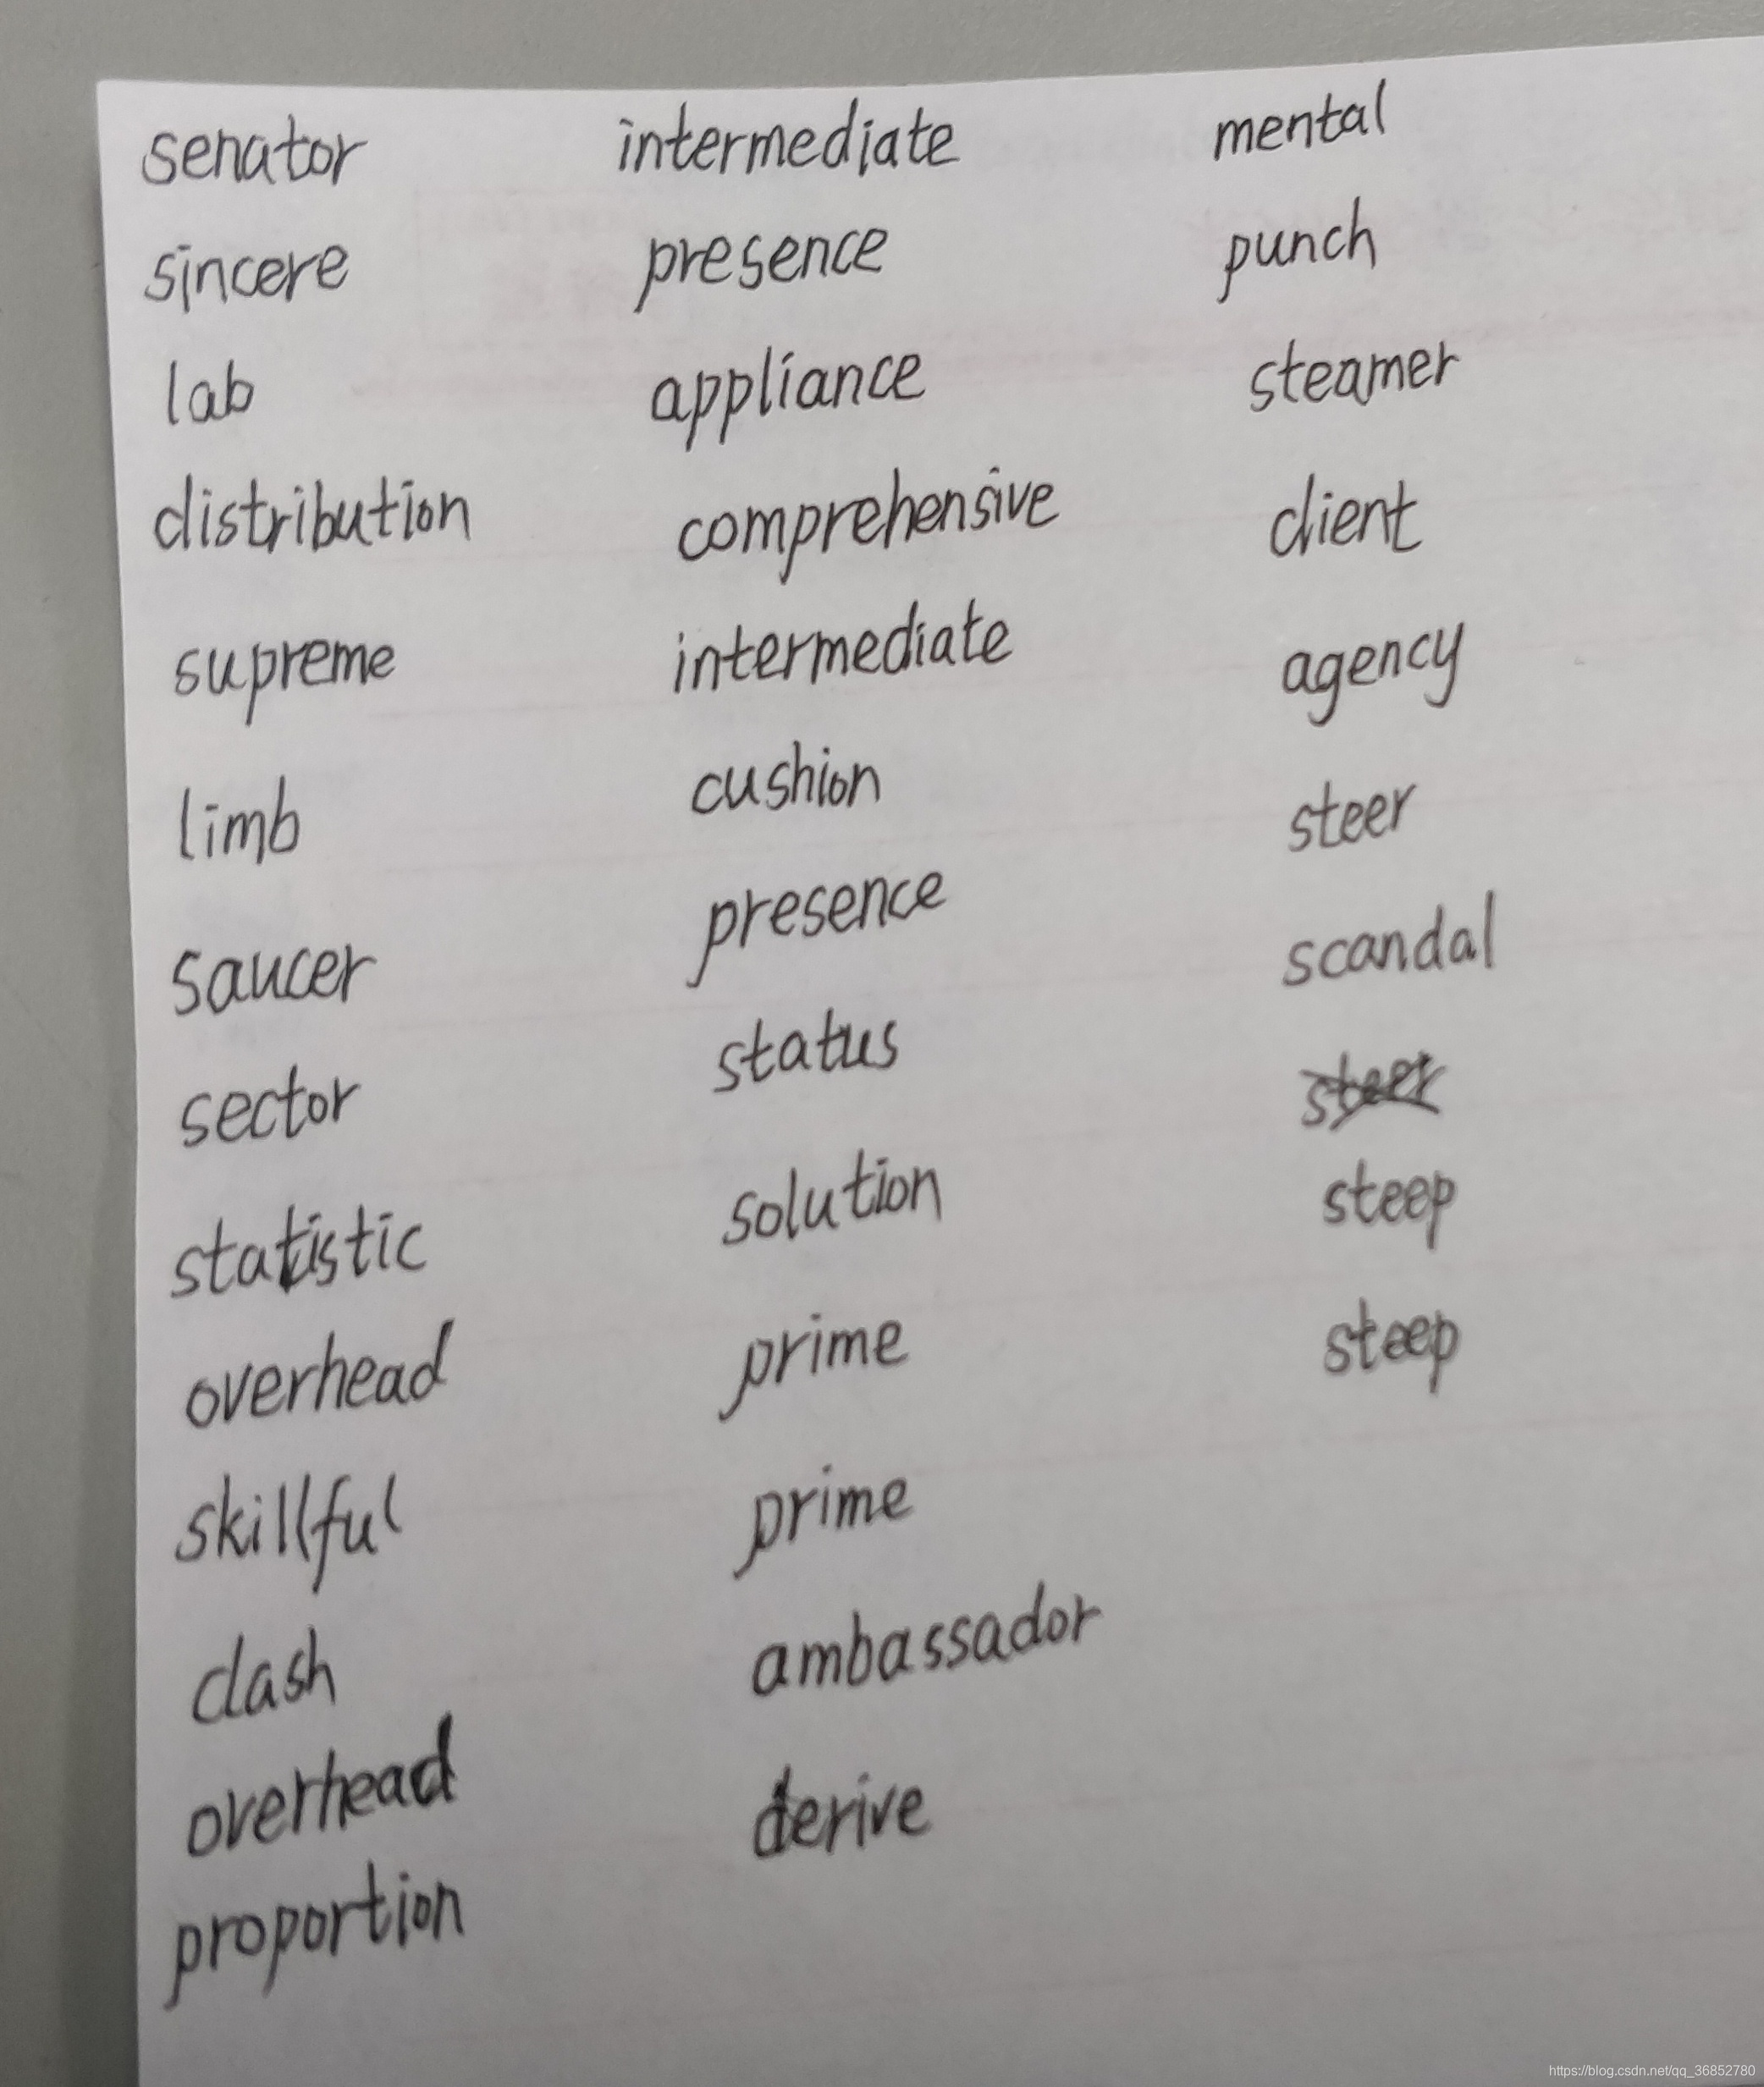 senator
sincere
lab
distribution
supreme
limb
saucer
sector
statistic
overhead
skillful
clash
overhead
proportion
intermediate
presence
appliance
comprehensive
intermediate
cushion
presence
status
solution
prime
prime
ambassador
derive
mental
punch
steamer
client
agency
steer
scandal
steer
steep
steep
https://blog.csdn.net/qq_36852780